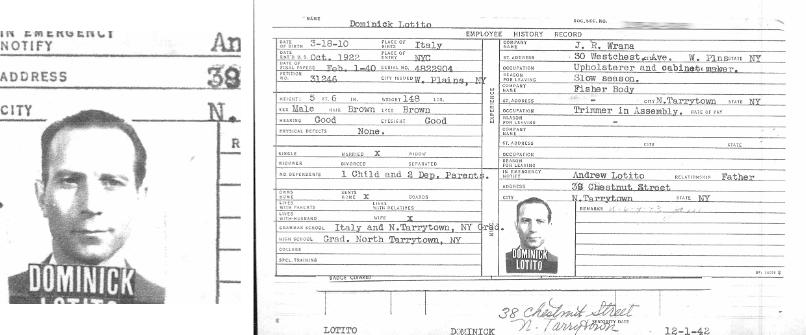 IN EMERGENCY
NOTIFY An
ADDRESS 38
CITY N.
R
DOMINICK
LOTITO
NAME Dominick Lotito SOC. SEC. NO.
EMPLOYEE HISTORY RECORD
DATE OF BIRTH 3-18-10 PLACE OF BIRTH Italy
DATE ENT'D U.S. Oct. 1922 PLACE OF ENTRY NYC
DATE OF FINAL PAPERS Feb. 1-40 SERIAL NO. 4822904
PETITION NO. 31246 CITY ISSUED W. Plains, NY
HEIGHT: 5 FT. 6 IN. WEIGHT 148 LBS.
SEX Male HAIR Brown EYES Brown
HEARING Good EYESIGHT Good
PHYSICAL DEFECTS None.
SINGLE MARRIED X WIDOW
WIDOWER DIVORCED SEPARATED
NO. DEPENDENTS 1 Child and 2 Dep. Parents.
OWNS HOME RENTS HOME X BOARDS
LIVES WITH PARENTS LIVES WITH RELATIVES
LIVES WITH HUSBAND WIFE X
GRAMMAR SCHOOL Italy and N.Tarrytown, NY Grad.
HIGH SCHOOL Grad. North Tarrytown, NY
COLLEGE
SPCL. TRAINING
EXPERIENCE
COMPANY NAME J. R. Wrana
ST. ADDRESS 30 Westchest.Ave. W. Plns STATE NY
OCCUPATION Upholsterer and cabinetmaker.
REASON FOR LEAVING Slow season.
COMPANY NAME Fisher Body
ST. ADDRESS - CITY N.Tarrytown STATE NY
OCCUPATION Trimmer in Assembly. RATE OF PAY
REASON FOR LEAVING -
COMPANY NAME
ST. ADDRESS CITY STATE
OCCUPATION
REASON FOR LEAVING
IN EMERGENCY NOTIFY Andrew Lotito RELATIONSHIP Father
ADDRESS 38 Chestnut Street
CITY N.Tarrytown STATE NY
REMARKS
DOMINICK
LOTITO
BADGE
38 Chestnut Street
N. Tarrytown
DATE
LOTITO DOMINICK 12-1-42